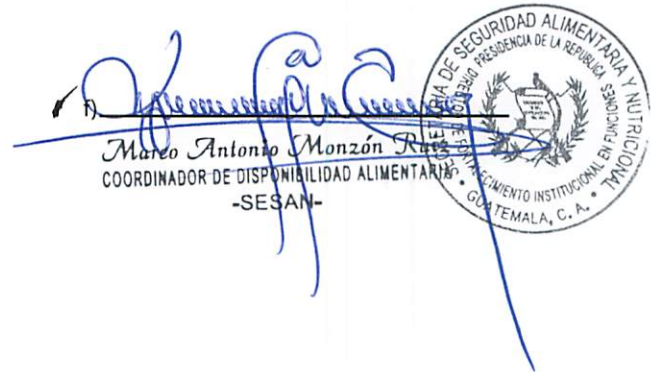 f)
Mateo Antonio Monzón Ruiz
COORDINADOR DE DISPONIBILIDAD ALIMENTARIA
-SESAN-
SECRETARIA DE SEGURIDAD ALIMENTARIA Y NUTRICIONAL
PRESIDENCIA DE LA REPUBLICA
DIRECTOR DE FORTALECIMIENTO INSTITUCIONAL EN FUNCIONES
GUATEMALA, C. A.